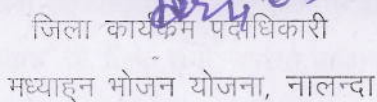 जिला कार्यकम पदाधिकारी
मध्याह्न भोजन योजना, नालन्दा